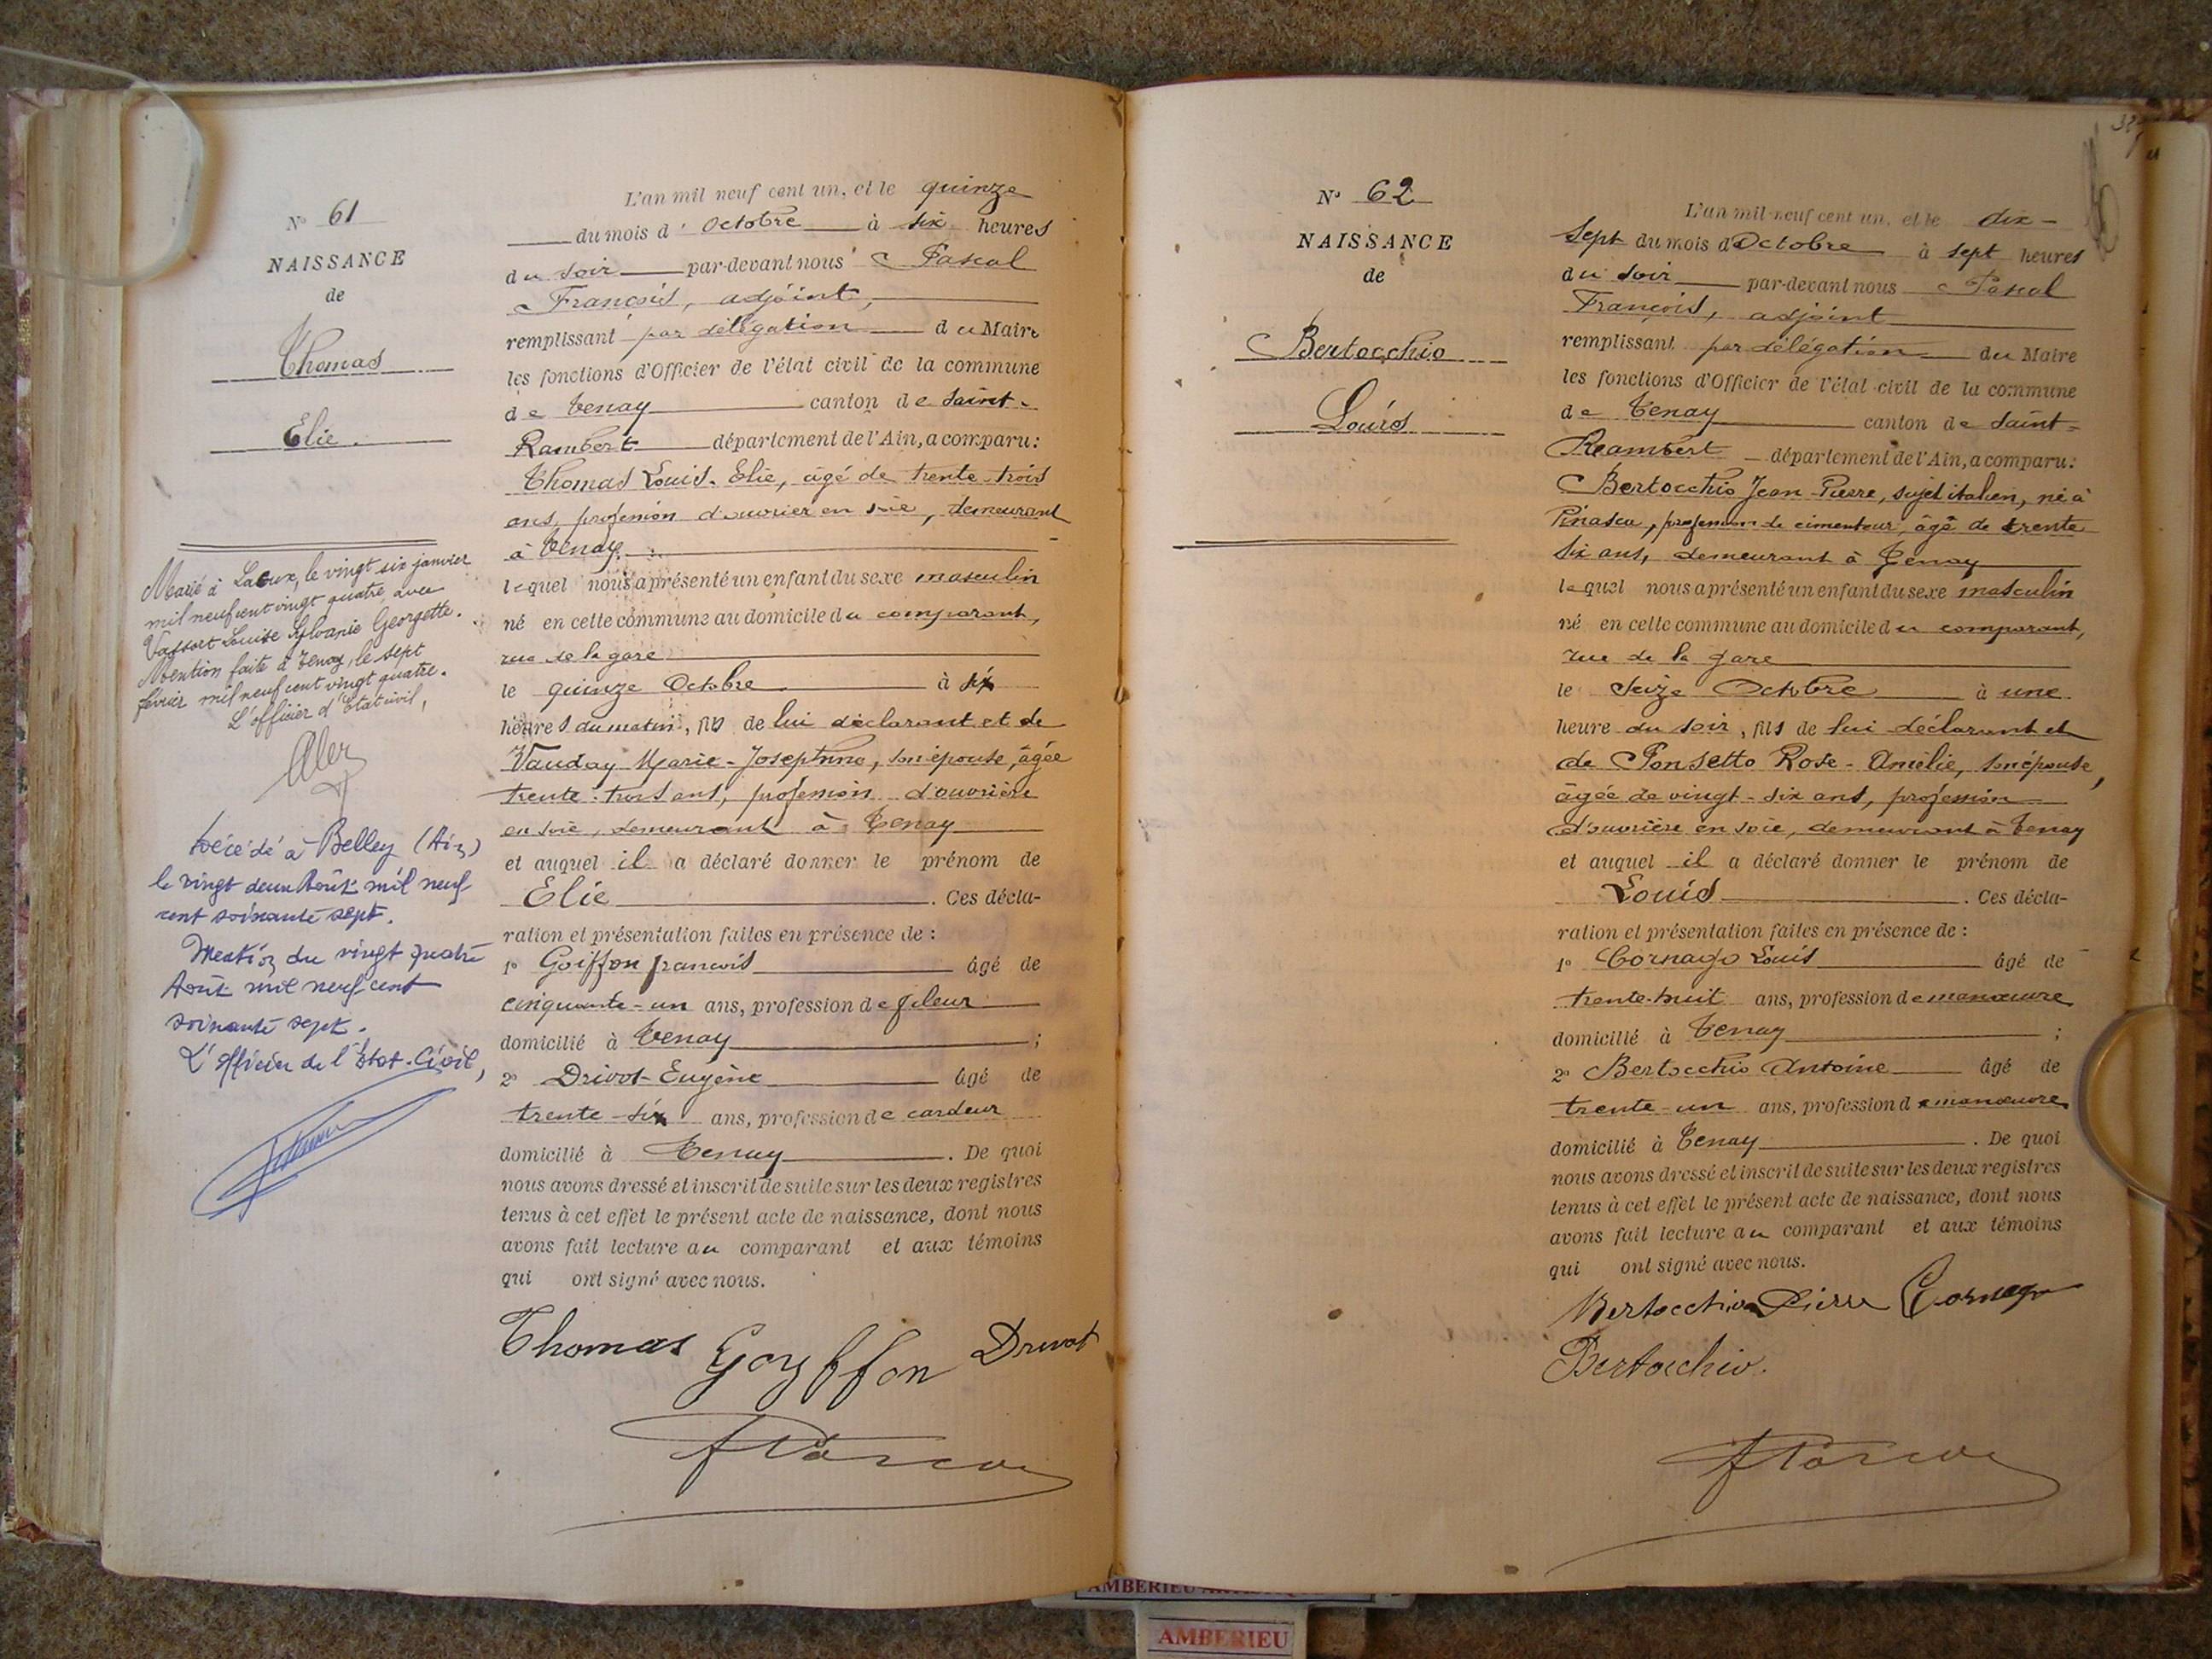 N° 61
NAISSANCE
de
Thomas
Elie.
Marié à Lacoux, le vingt six janvier
mil neuf cent vingt quatre, avec
Vassort Louise Sylvanie Georgette.
Mention faite à Tenay, le sept
février mil neuf cent vingt quatre.
L'officier d'Etat civil,
Décédé à Belley (Ain)
le vingt deux Août mil neuf
cent soixante sept.
Mention du vingt quatre
Août mil neuf cent
soixante sept.
L'officier de l'Etat-Civil,
L'an mil neuf cent un, et le quinze
du mois d'Octobre à six heures
du soir par-devant nous Pascal
François, adjoint,
remplissant par délégation du Maire
les fonctions d'Officier de l'état civil de la commune
de Tenay canton de Saint-
Rambert département de l'Ain, a comparu:
Thomas Louis-Elie, âgé de trente-trois
ans, profession d'ouvrier en soie, demeurant
à Tenay.
lequel nous a présenté un enfant du sexe masculin
né en cette commune au domicile du comparant,
rue de la gare
le quinze Octobre à six
heures du matin, fils de lui déclarant et de
Vauday Marie-Josephine, son épouse, âgée
trente-trois ans, profession d'ouvrière
en soie, demeurant à Tenay
et auquel il a déclaré donner le prénom de
Elie. Ces décla-
ration et présentation faites en présence de :
1° Goiffon francois âgé de
cinquante-un ans, profession de fileur
domicilié à Tenay ;
2° Drivot Eugène âgé de
trente-six ans, profession de cardeur
domicilié à Tenay. De quoi
nous avons dressé et inscrit de suite sur les deux registres
tenus à cet effet le présent acte de naissance, dont nous
avons fait lecture au comparant et aux témoins
qui ont signé avec nous.
Thomas Goyffon Drivot
N° 62
NAISSANCE
de
Bertocchio
Louis
L'an mil neuf cent un, et le dix-
Sept du mois d'Octobre à sept heures
du soir par-devant nous Pascal
François, adjoint
remplissant par délégation du Maire
les fonctions d'Officier de l'état civil de la commune
de Tenay canton de Saint-
Rambert département de l'Ain, a comparu:
Bertocchio Jean-Pierre, sujet italien, né à
Pinasca, profession de cimenteur, âgé de trente
six ans, demeurant à Tenay
lequel nous a présenté un enfant du sexe masculin
né en cette commune au domicile du comparant,
rue de la gare
le Seize Octobre à une
heure du soir, fils de lui déclarant et
de Ponsetto Rose-Amélie, son épouse,
âgée de vingt-six ans, profession
d'ouvrière en soie, demeurant à Tenay
et auquel il a déclaré donner le prénom de
Louis. Ces décla-
ration et présentation faites en présence de :
1° Cornago Louis âgé de
trente-huit ans, profession de manœuvre
domicilié à Tenay ;
2° Bertocchio Antoine âgé de
trente-un ans, profession de manœuvre
domicilié à Tenay. De quoi
nous avons dressé et inscrit de suite sur les deux registres
tenus à cet effet le présent acte de naissance, dont nous
avons fait lecture au comparant et aux témoins
qui ont signé avec nous.
Bertocchio Pierre Cornago
Bertocchio.
AMBERIEU